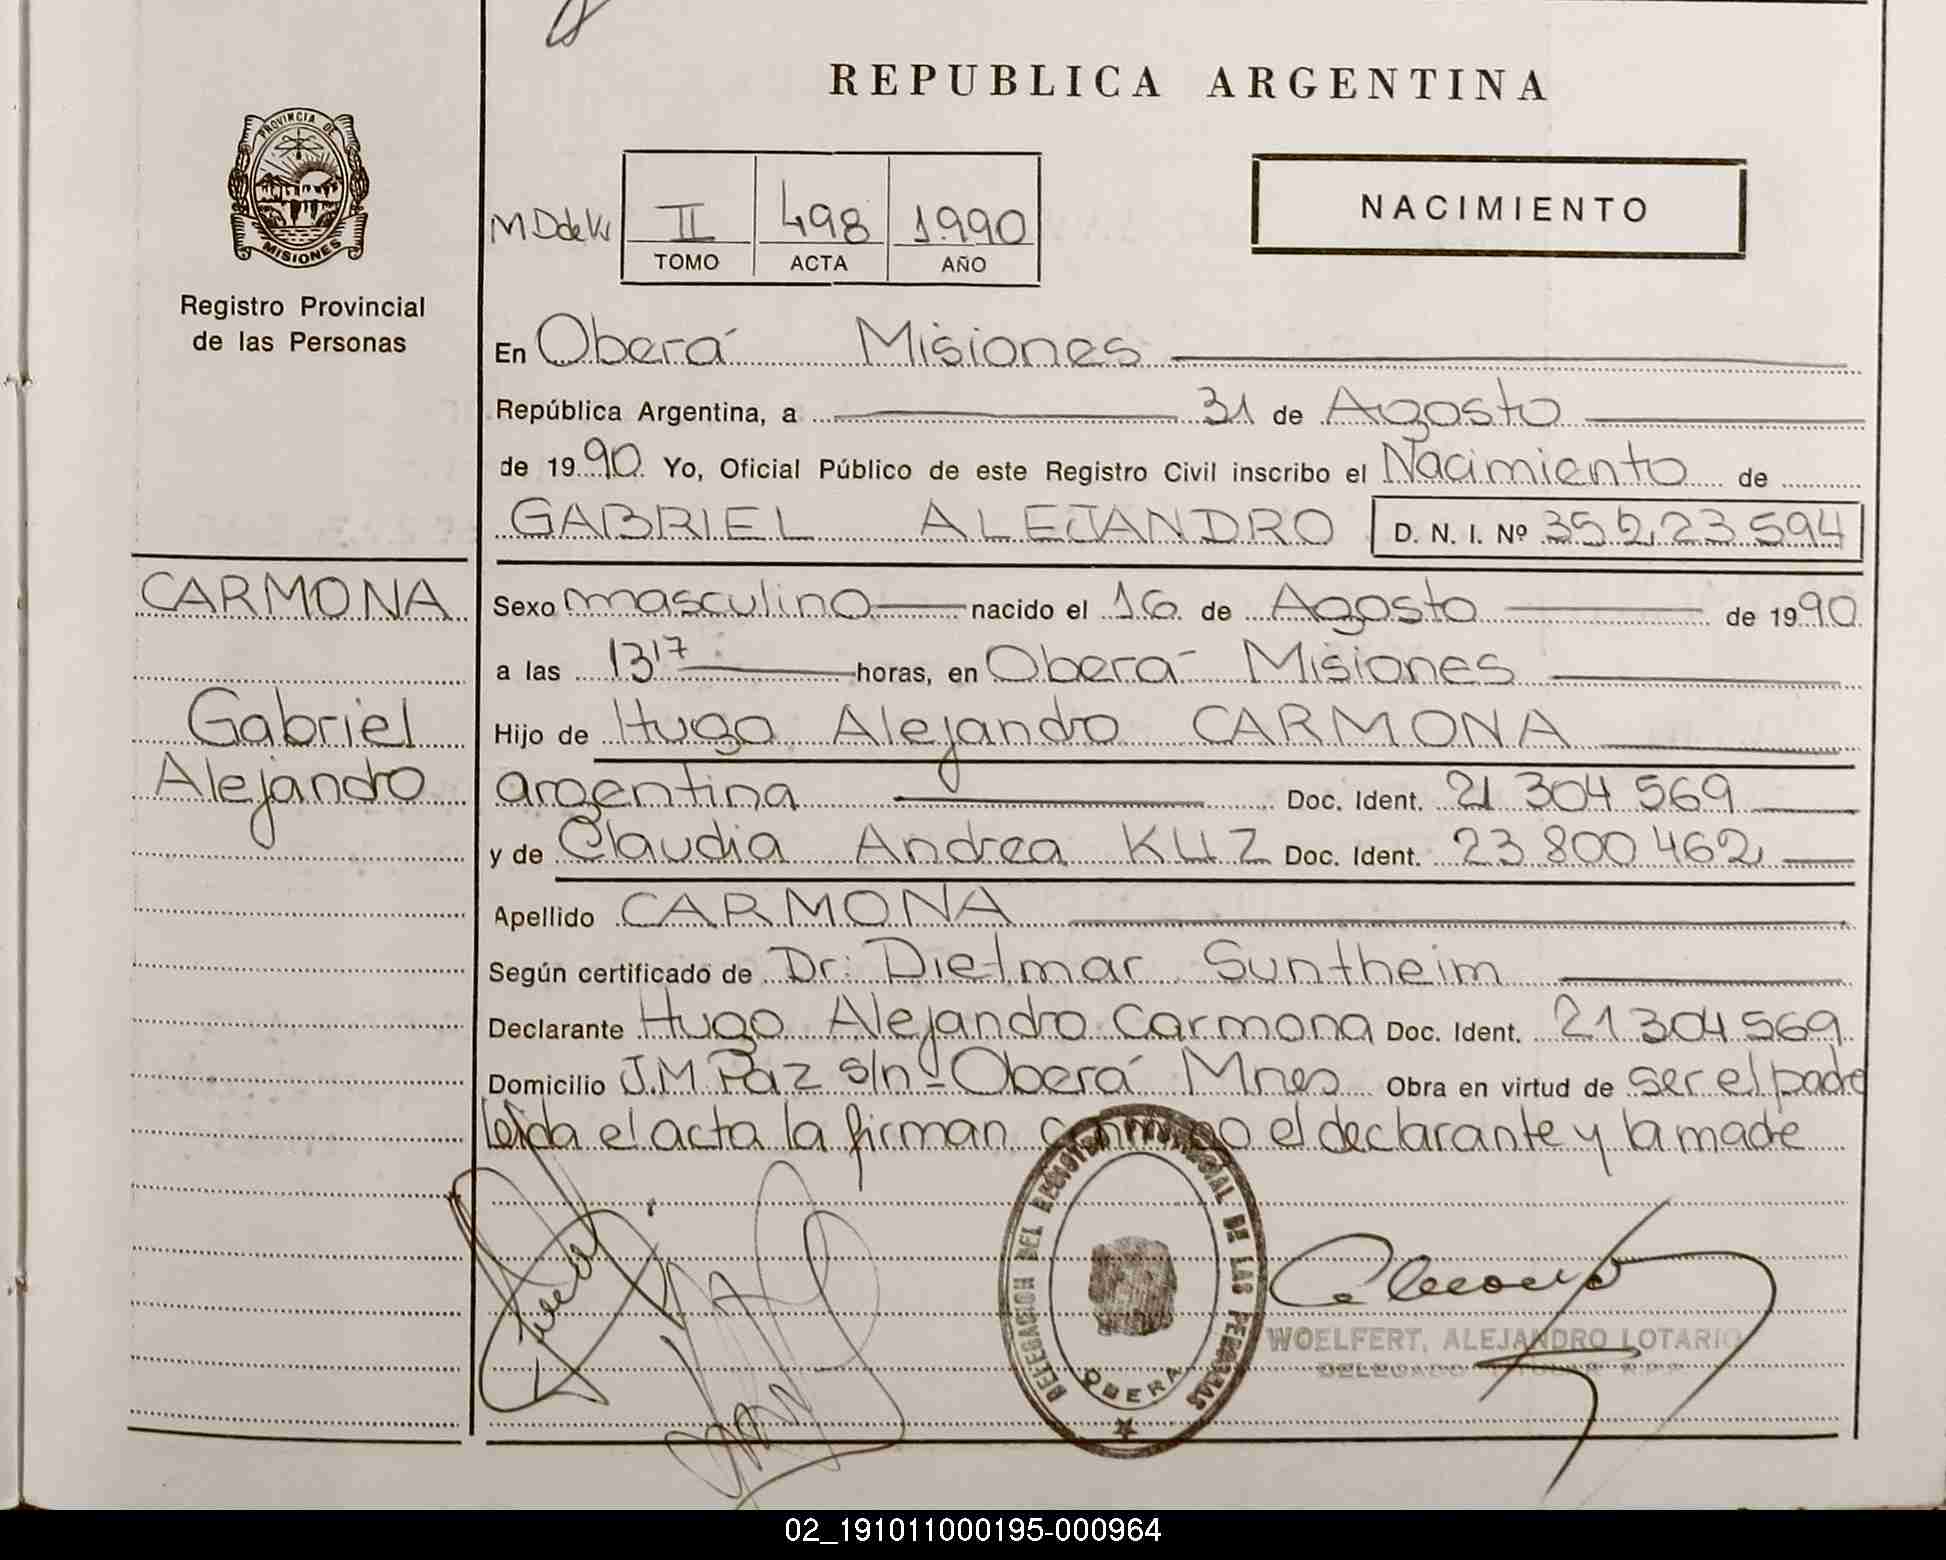 REPUBLICA ARGENTINA
PROVINCIA DE
MISIONES
Registro Provincial
de las Personas
II 498 1990
TOMO ACTA AÑO
NACIMIENTO
En Oberá Misiones
República Argentina, a 31 de Agosto
de 1990 Yo, Oficial Público de este Registro Civil inscribo el Nacimiento de
GABRIEL ALEJANDRO D. N. I. Nº 35 223 594
CARMONA
Gabriel
Alejandro
Sexo masculino nacido el 16 de Agosto de 1990
a las 13 17 horas, en Oberá Misiones
Hijo de Hugo Alejandro CARMONA
argentina Doc. Ident. 21 304 569
y de Claudia Andrea KUZ Doc. Ident. 23 800 462
Apellido CARMONA
Según certificado de Dr. Dietmar Suntheim
Declarante Hugo Alejandro Carmona Doc. Ident. 21.304.569
Domicilio J.M. Paz s/nº Oberá Mnes Obra en virtud de ser el padre
leída el acta la firman conmigo el declarante y la madre
DELEGACION DEL REGISTRO PROVINCIAL DE LAS PERSONAS
OBERA
WOELFERT, ALEJANDRO LOTARIO
DELEGADO R.P.P.
02_191011000195-000964